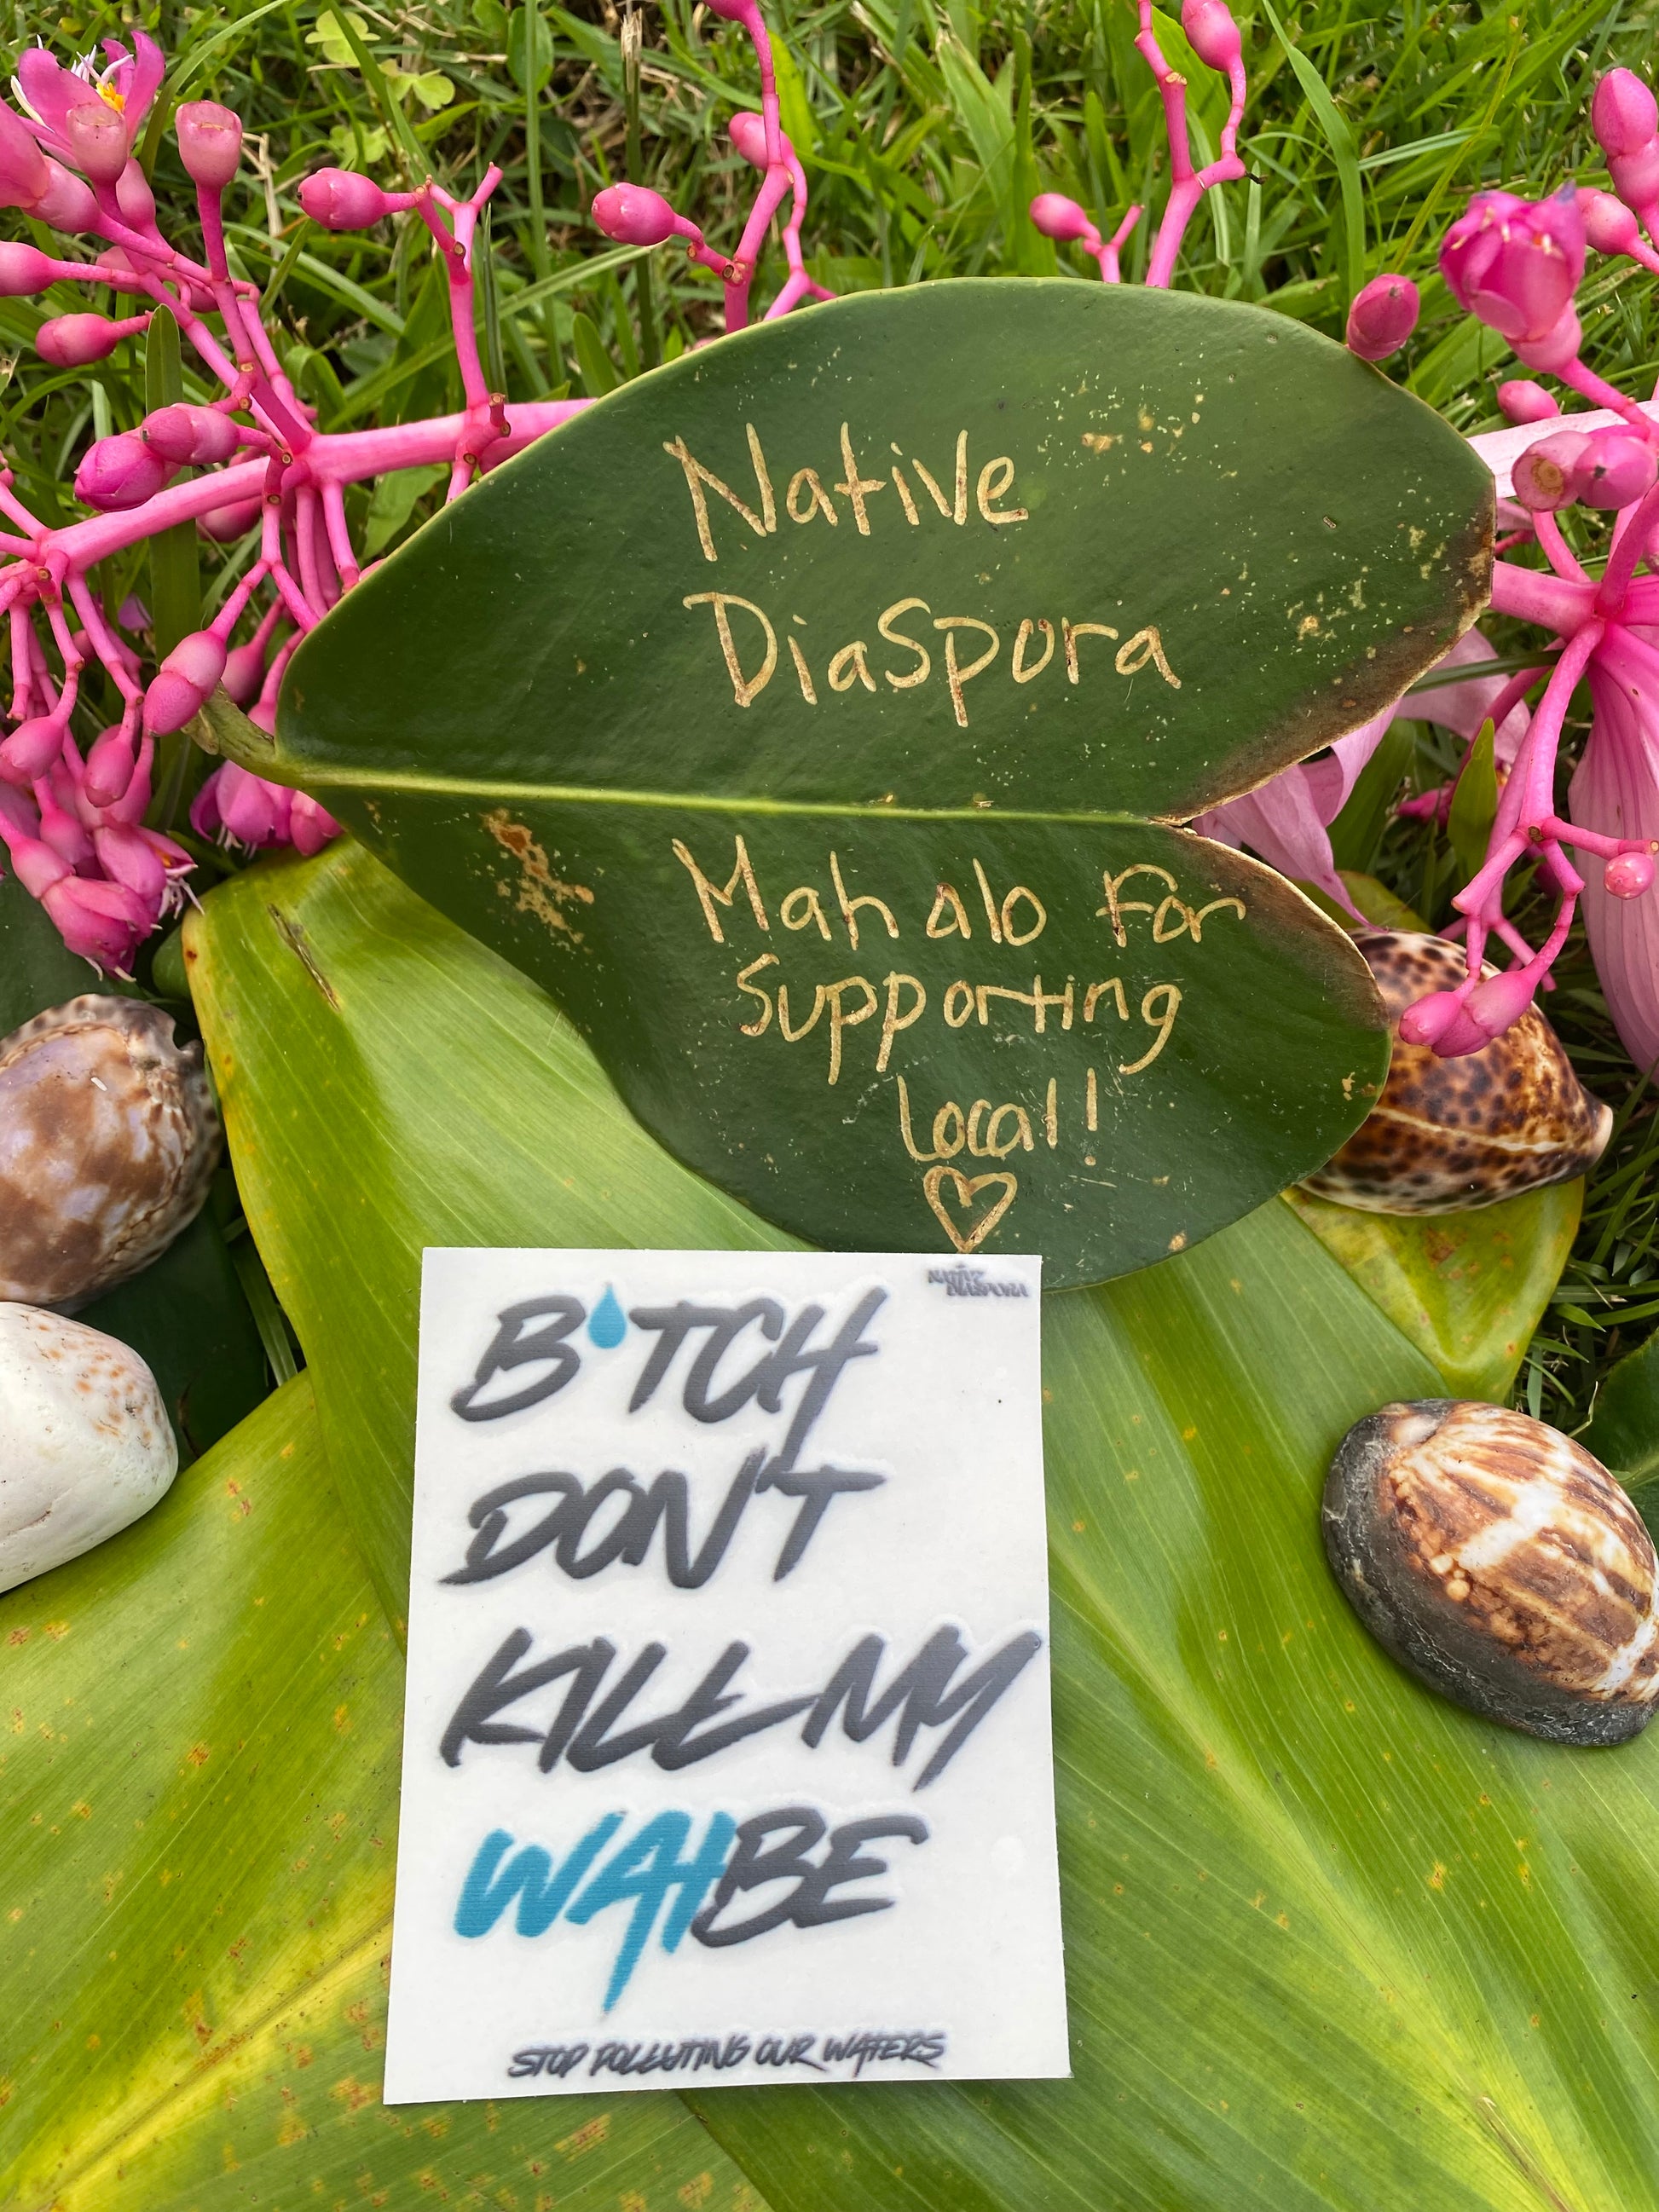 Native
Diaspora
Mahalo For
Supporting
local!
NATIVE
DIASPORA
B TCH
DON'T
KILL MY
WAIBE
STOP POLLUTING OUR WATERS